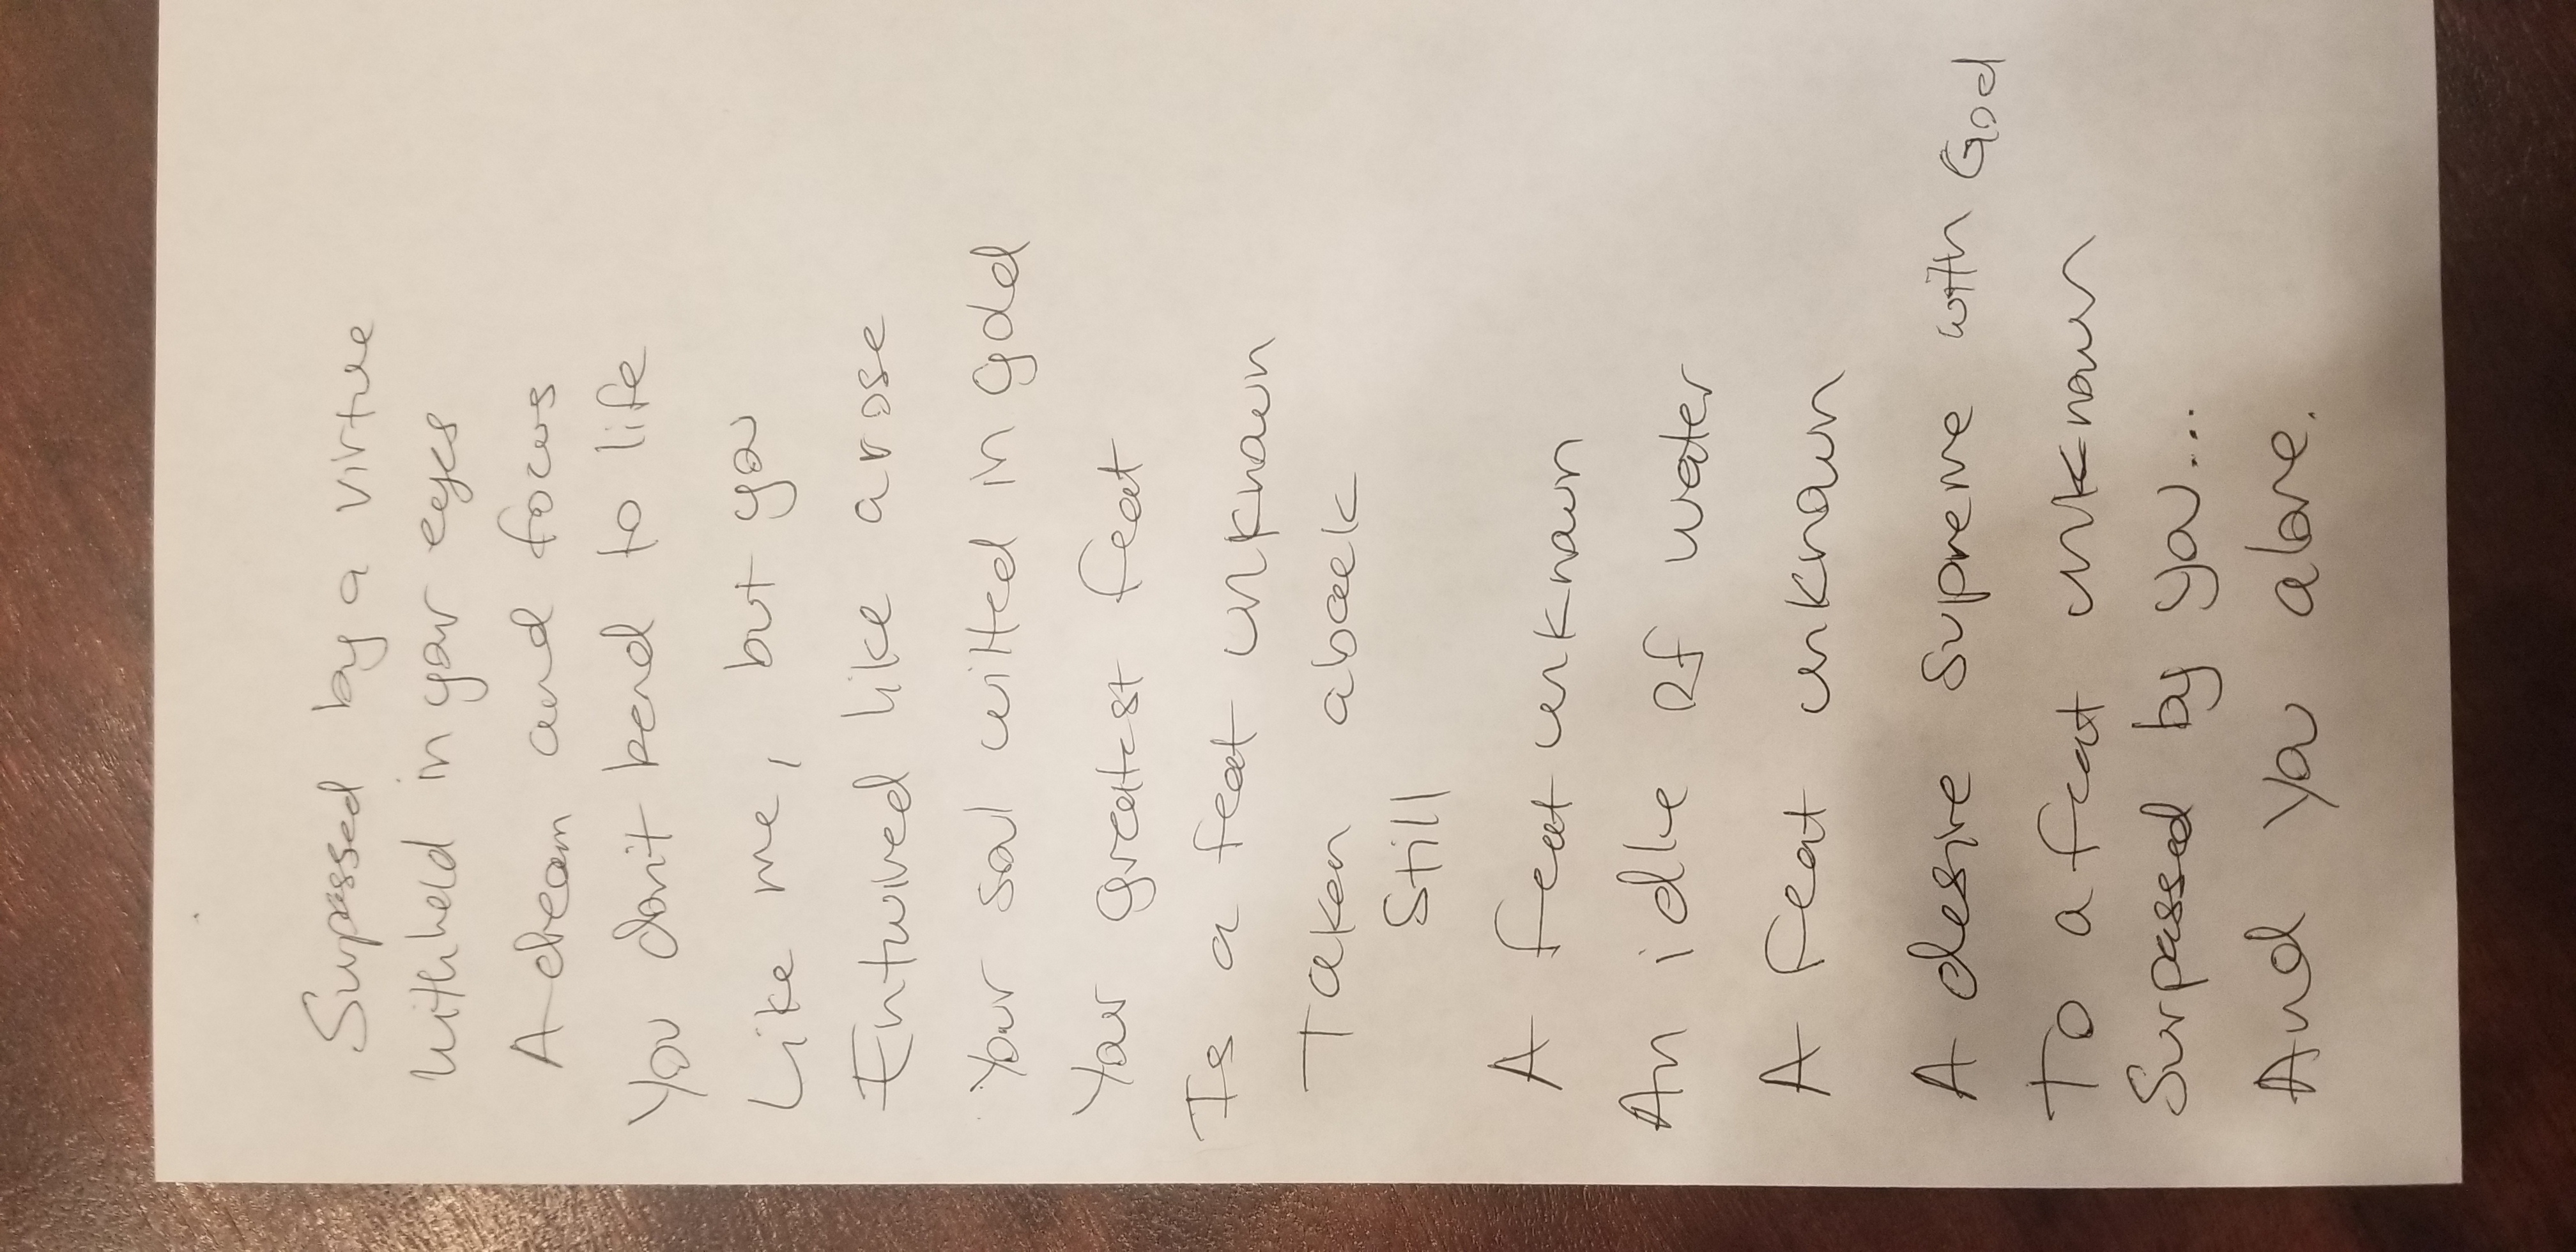 Surpassed by a virtue
Withheld in your eyes
A dream and focus
You don't bend to life
Like me, but you
Entwined like a rose
Your soul wilted in gold
Your greatest feat
Is a feat unknown
Taken aback
Still
A feat unknown
An idle of water
A feat unknown
A desire supreme with God
To a feat unknown
Surpassed by you...
And you alone.